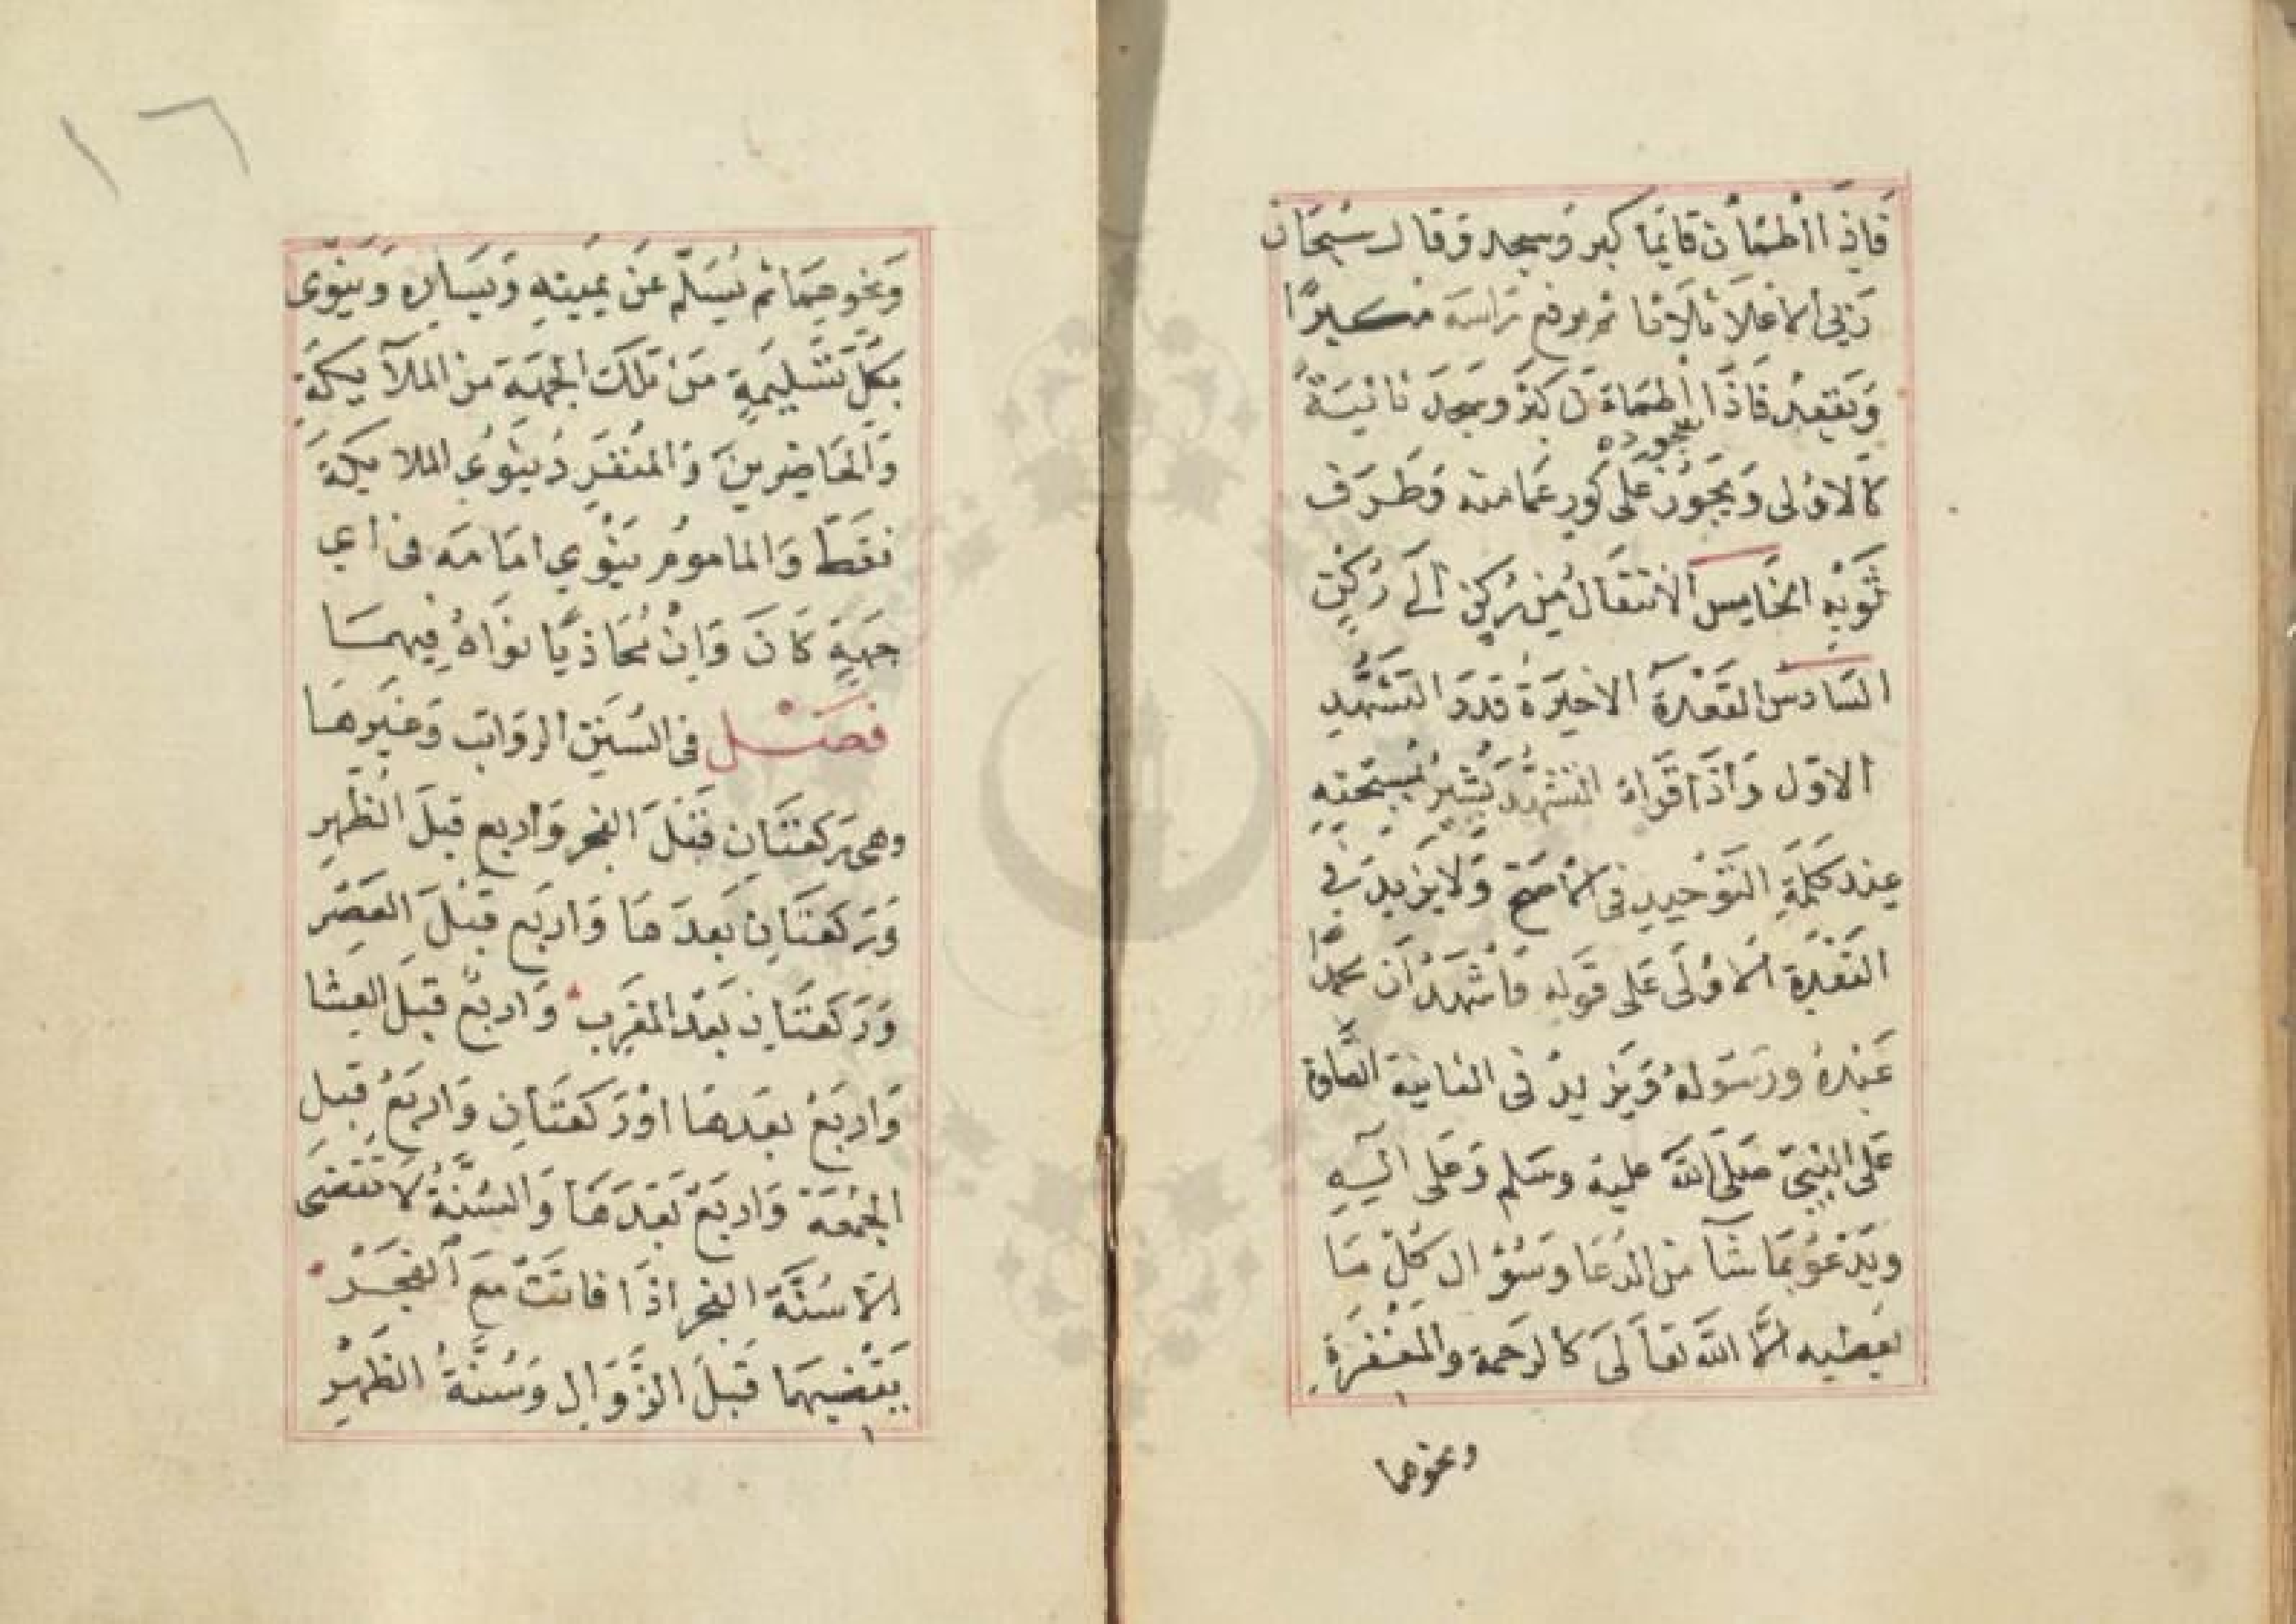 فَاِذَا اطْمَأَنَ قَائِمًا كبر وَسجد وَقال سُبْحَان
رَبِي الاعْلَا ثَلَاثا ثم يرفع رَاسَه مكبرًا
وَيَقعد فَاذَا اطمَاءَنَ كبَّر وسَجدَ ثانِيَةً
كَالاوُلى وَيَجُوز سجوده عَلَى كور عَمَامته وَطَرَف
ثَوْبِهِ الخَامِس الانْتقَالُ مِن رُكنٍ الَى رُكنٍ
السَادسَ القَعْدَة الاخِيرَةُ قَدَرَ التَشَهُّدِ
الاوّل وَاذَا قَراءَ التشَهُّدَ يُشِيرُ بمُسَبِّحَتِهِ
عِندَ كَلِمَةِ التَوْحِيدِ فى الاصَحّ وَلَا يَزِيدَ فِي
القَعْدَةِ الاوُلَى عَلى قَولِه وَاشْهَدُ اَن محمدًا
عَبْدُهُ ورَسَولهُ وَيَزِيدُ فى الثانِية الصَّلَاة
عَلى النِبيّ صَلى اللَّه عليه وسَلم وَعَلى آلِهِ
ويَدْعُو بمَا شَآ من الدُعَا وسُوْال كُلّ مَا
يعطيه الَّا اللَّه تعَالَى كالرَحمة والمَغْفِرَةِ
ونحوهما
١٦
وَنحوهِمَا ثم يُسَلّم عَن يَمِينِهِ وَيَسَارِه وَيَنوِى
بكلّ تَسْلِيمَةٍ مَنْ تلكَ الجهَة مِن المَلَآئِكَةِ
وَالحَاضِرِينَ وَالمنُفَرِدُ يَنْوِي الملائكة
فَقَطْ وَالماموُم يَنْوِي امَامَه فى اي
جهَةٍ كَانَ وَاِنْ مُحَاذيًا نوَاهُ فِيهمَا
فَصْل فى السُنَنِ الروَاتب وَغَيرهَا
وهى رَكعَتَانِ قَبْلَ الفَجر وَاربع قبلَ الظُهرِ
وَرَكعَتَانِ بَعدَهَا وَاربَع قَبْلَ العَصْرِ
وَرَكعَتَانِ بَعدَ المَغرِب وَاربَعُ قبلَ العِشا
وَاربَعُ بعَدهَا اوْ رَكعَتَانِ وَاربَعُ قبلِ
الجُمعَة وَاربَعُ بَعْدَهَا وَالسُنَّةُ لَا تقضَى
الّا سُنَّة الفَجر اذَا فاتَتْ معَ الفَجر
يَقْضِيهَا قَبلَ الزَّوَالِ وَسُنَّةُ الظُهْرِ